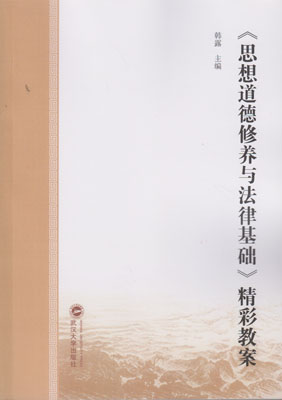 《思想道德修养与法律基础》精彩教案
韩露 主编
武汉大学出版社